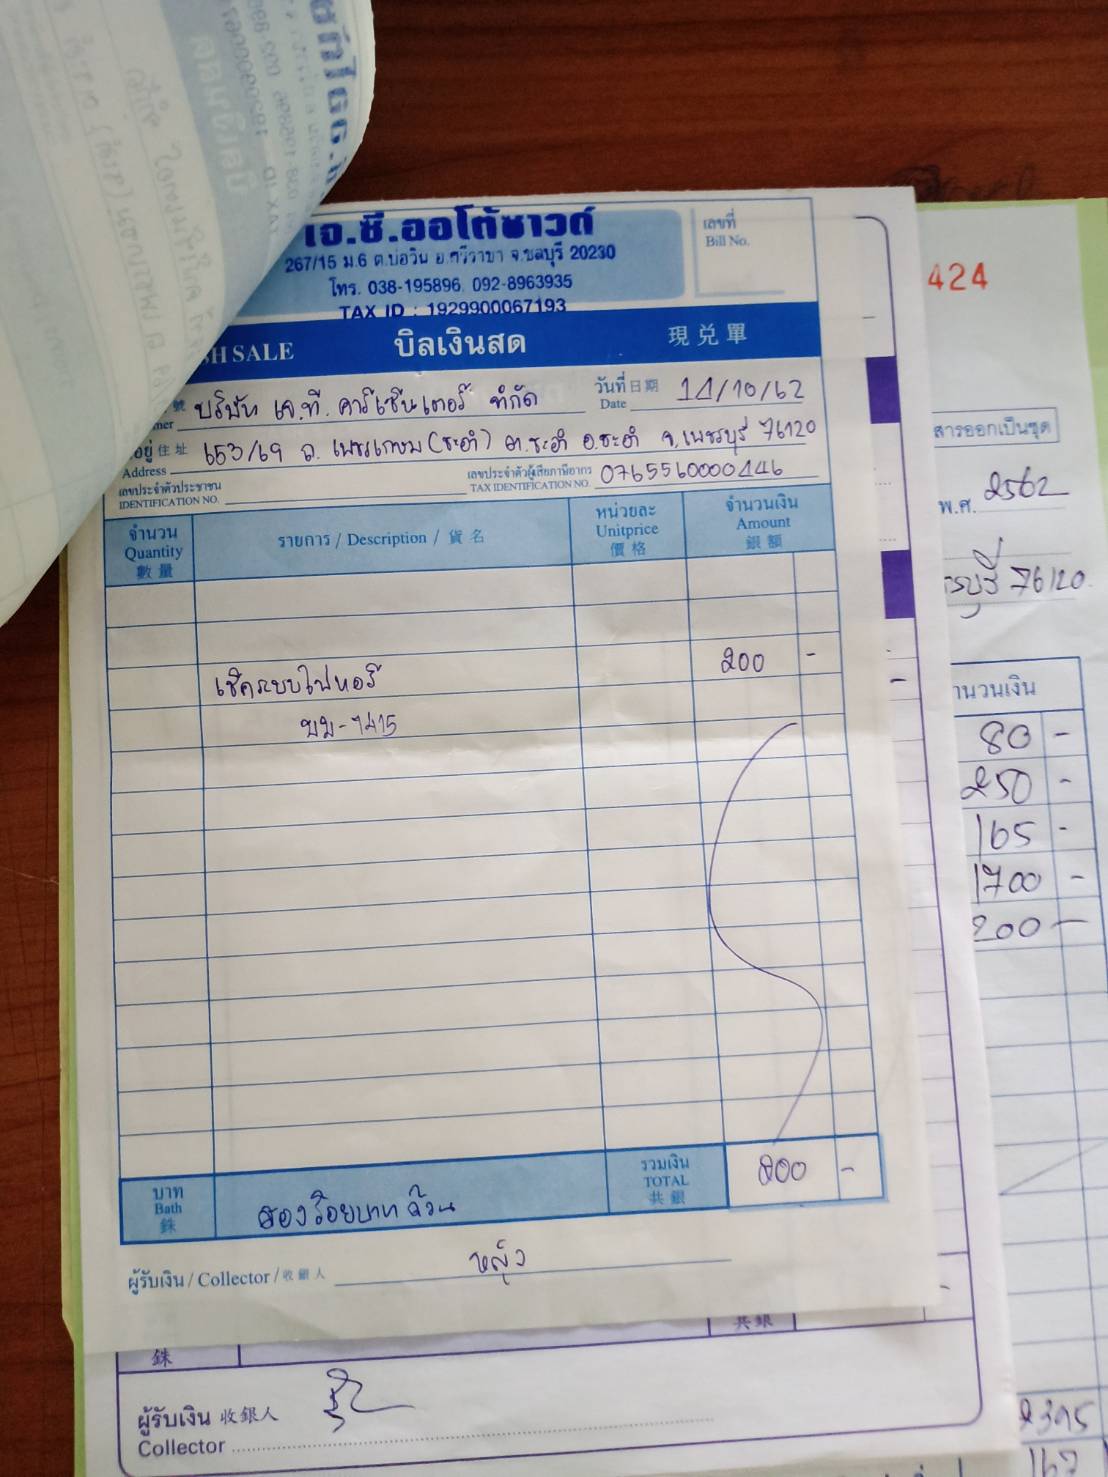 เจ.ซี.ออโต้ซาวด์
267/15 ม.6 ต.บ่อวิน อ.ศรีราชา จ.ชลบุรี 20230
โทร. 038-195896, 092-8963935
TAX ID : 1929900067193
เลขที่
Bill No.
SH SALE บิลเงินสด 現兌單
บริษัท เจ.ที. คาร์เซ็นเตอร์ จำกัด
วันที่ 日期 Date 11/10/62
อยู่ 住址 Address 653/69 ถ. เพชรเกษม (ชะอำ) ต.ชะอำ อ.ชะอำ จ.เพชรบุรี 76120
เลขประจำตัวประชาชน
IDENTIFICATION NO.
เลขประจำตัวผู้เสียภาษีอากร
TAX IDENTIFICATION NO. 0765560000446
จำนวน Quantity 數量
รายการ / Description / 貨名
หน่วยละ Unitprice 價格
จำนวนเงิน Amount 銀額
เช็คระบบไฟหอรี่ 200 -
บม-7415
บาท Bath 銖
สองร้อยบาทถ้วน
รวมเงิน TOTAL 共銀
200 -
ผู้รับเงิน / Collector / 收銀人
銖
共銀
ผู้รับเงิน 收銀人
Collector
424
สารออกเป็นชุด
พ.ศ. 2562
76120
านวนเงิน
80 -
250 -
165 -
1700 -
200 -
2395
167